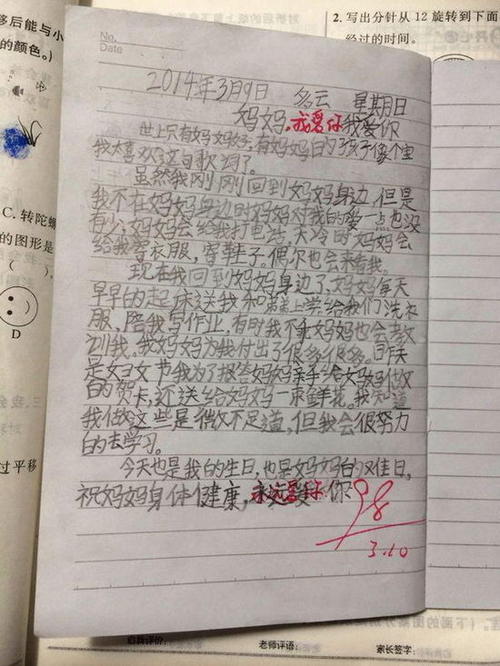 移后能与小
的颜色。)
C. 转陀螺
的图形是
( )。
D
过平移
2. 写出分针从 12 旋转到下面
经过的时间。
No.
Date
2014年3月9日 多云 星期日
妈妈,我爱你
世上只有妈妈好,有妈妈的孩子像个宝
我太喜欢这句歌词了。
虽然我刚刚回到妈妈身边,但是
我不在妈妈身边时妈妈对我的爱一点也没
有少,妈妈会给我打电话,天冷时妈妈会
给我寄衣服,寄鞋子,偶尔也会来看我。
现在我回到妈妈身边了,妈妈每天
早早的起床送我和弟弟上学,给我们洗衣
服,陪我写作业,有时我不乖妈妈也会教
我。我妈妈为我付出了很多很多。昨天
是妇女节我为了报答妈妈亲手给妈妈做
的贺卡,还送给妈妈一束鲜花。我知道
我做这些是微不足道,但我会很努力
的去学习。
今天也是我的生日,也是妈妈的佳日,
祝妈妈身体健康,永远爱你
98
3.10
自我评价:
老师评语:
家长签字: